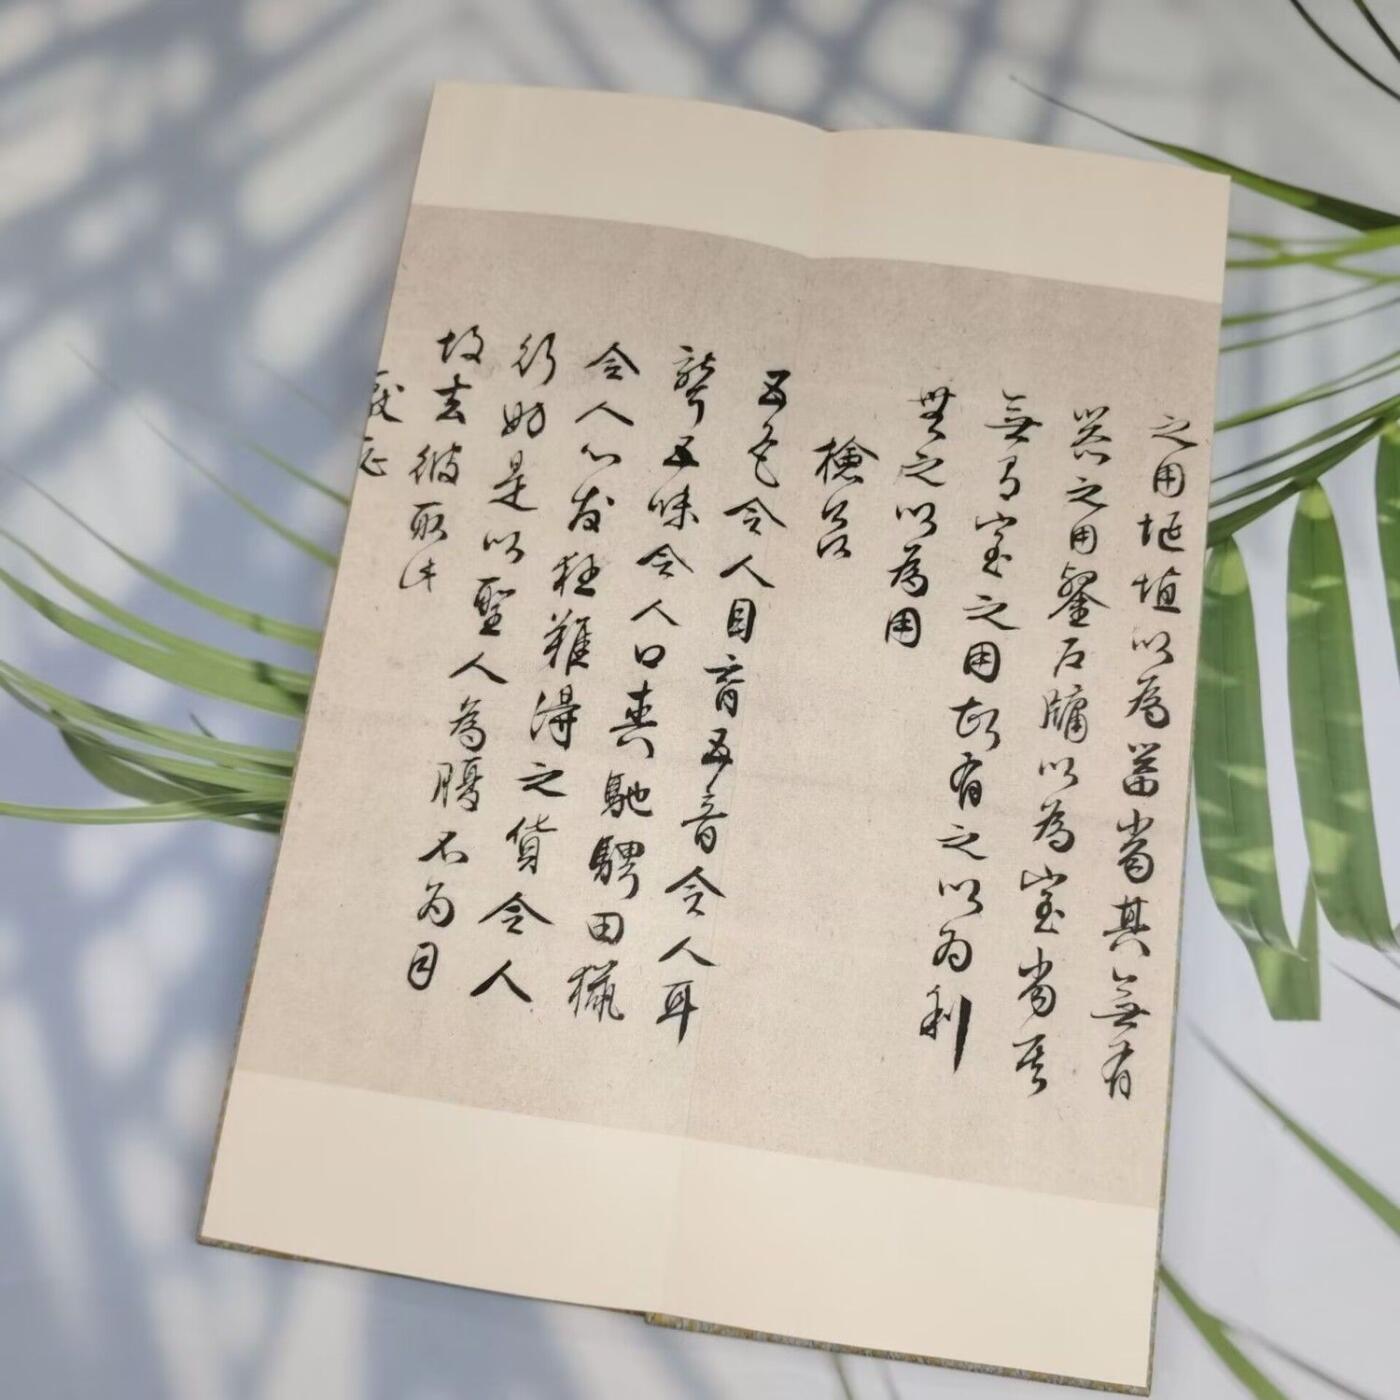 之用埏埴以為器當其無有
器之用鑿戶牖以為室當其
無有室之用故有之以為利
無之以為用
檢欲
五色令人目盲五音令人耳
聾五味令人口爽馳騁田獵
令人心發狂難得之貨令人
行妨是以聖人為腹不為目
故去彼取此
厭恥